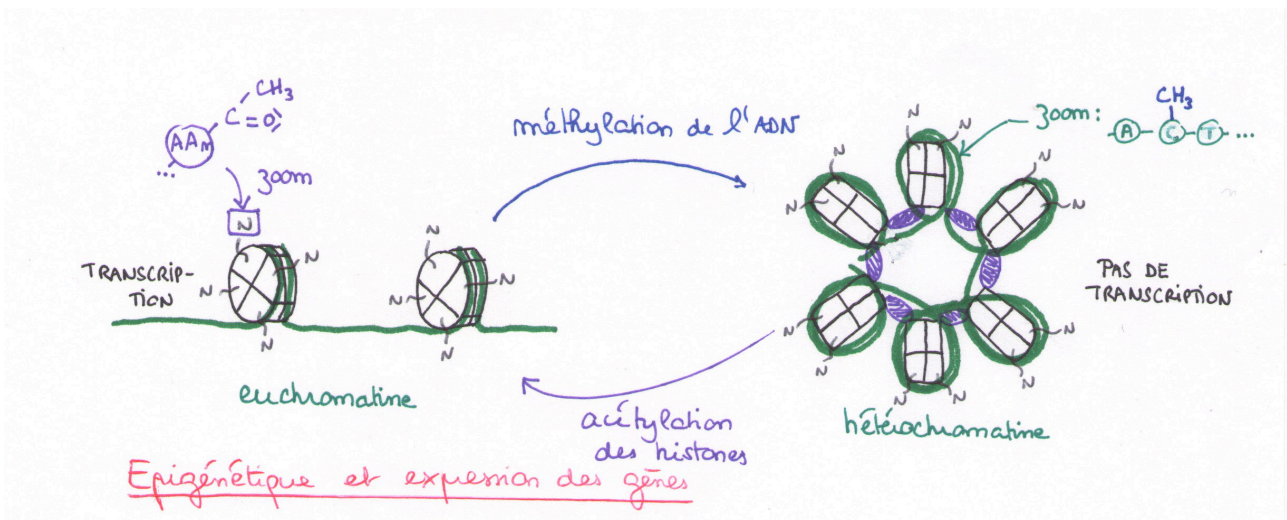 CH₃
C=O
AAn
...
zoom
N
N
N
N
N
N
N
N
N
TRANSCRIP-
TION
euchromatine
méthylation de l'ADN
acétylation
des histones
zoom:
CH₃
A-C-T-...
N
N
N
N
N
N
N
N
N
N
N
N
PAS DE
TRANSCRIPTION
hétérochromatine
Epigénétique et expression des gênes